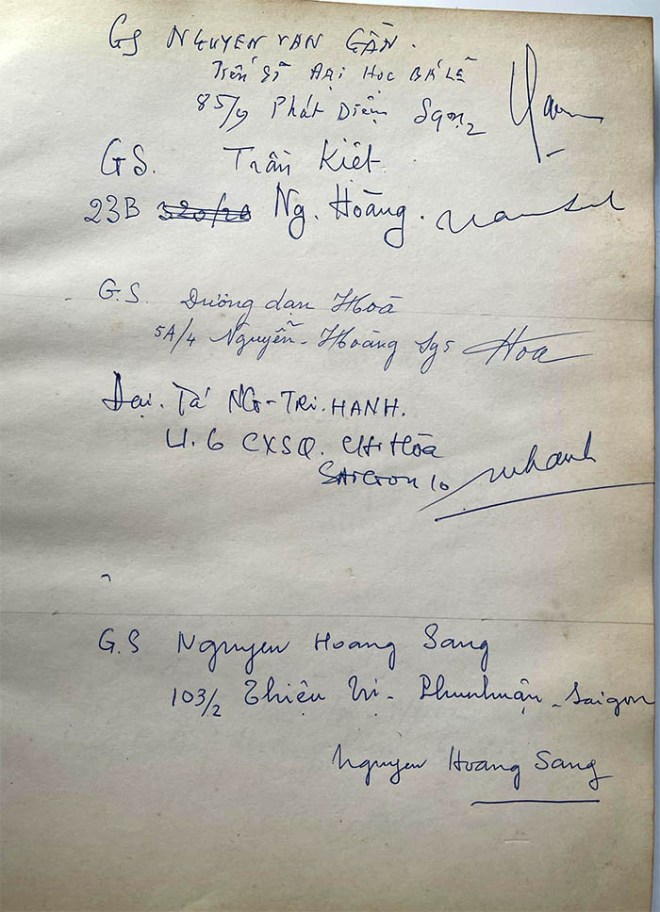 GS NGUYEN VAN GẦN.
Tiến Sĩ ĐẠI HỌC BÁ LÊ
85/9 Phát Diệm Sgon2
GS. Trần Kiết
23B Ng. Hoàng.
G.S. Dương dạn Hoà
5A/4 Nguyễn-Hoàng Sg5 Hoa
Đại. Tá NG-TRI.HANH.
4.6 CXSQ. CHÍ HÒA
SAIGON 10 nhanh
G.S Nguyen Hoang Sang
103/2 Thiệu Trị - Phunhuận - Saigon
Nguyen Hoang Sang